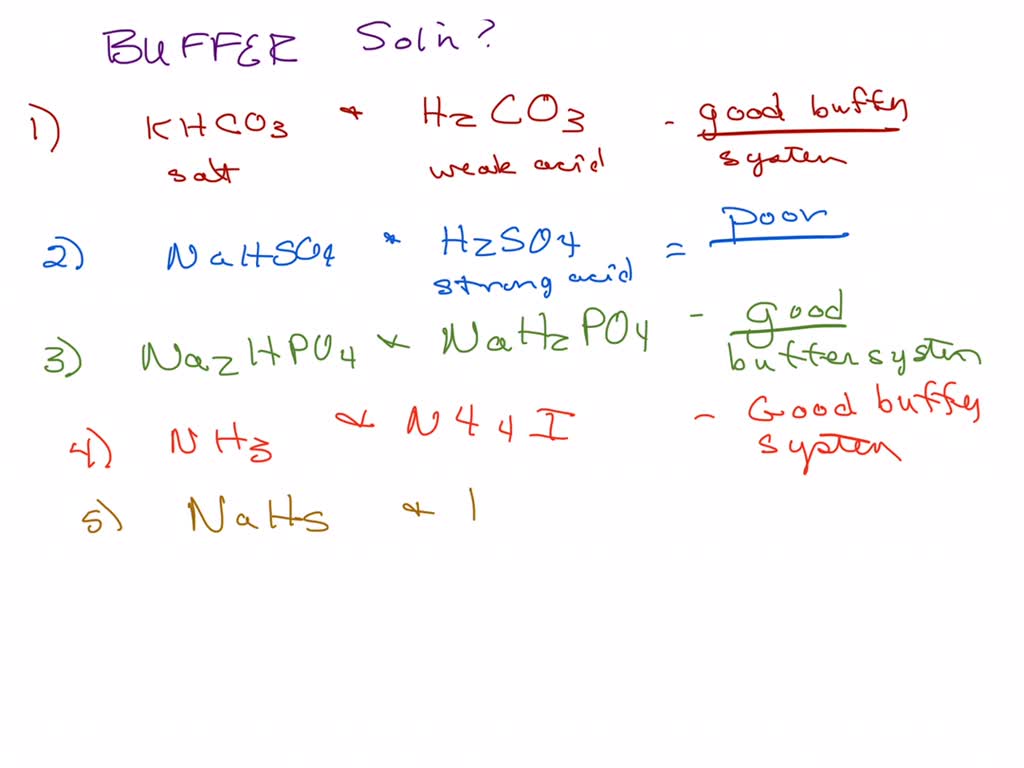 BUFFER Soln?
1) KHCO3 & H2CO3 - good buffer
salt weak acid system
2) NaHSO4 & H2SO4 = poor
strong acid
3) Na2HPO4 & NaH2PO4 - good
buffer system
4) NH3 & N44I - Good buffer
system
5) NaHS & I